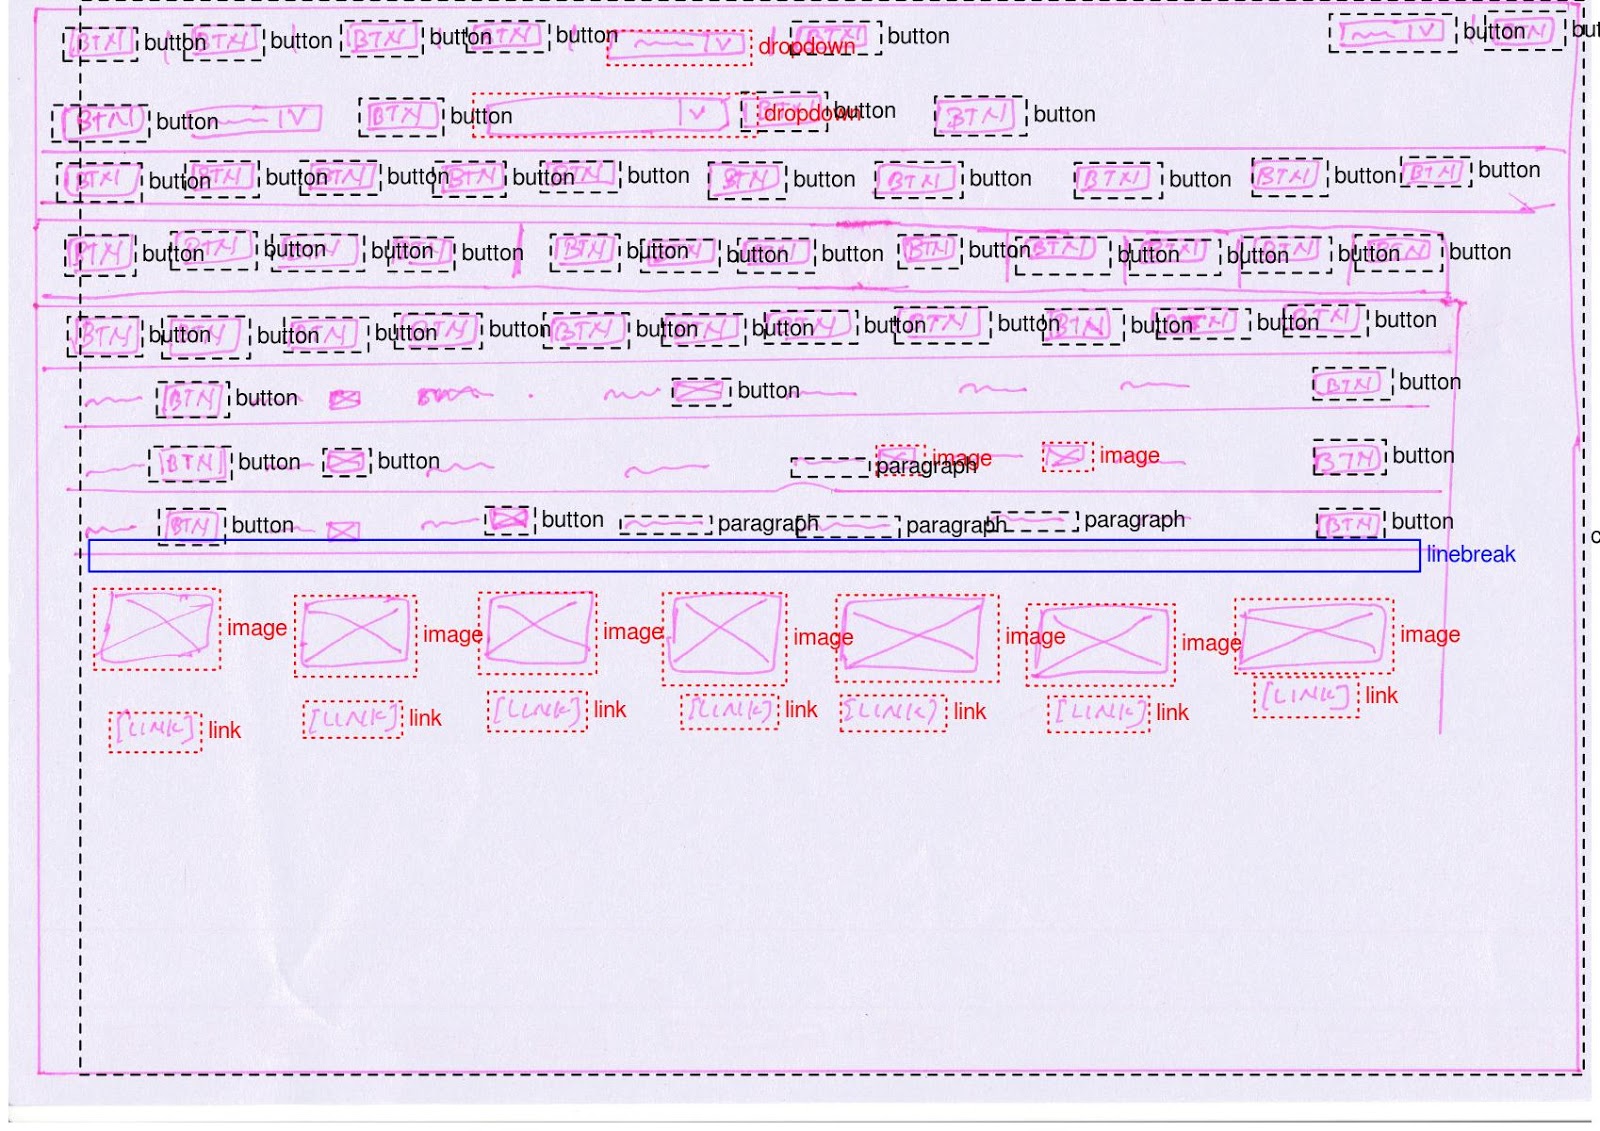 BTN button BTN button BTN button BTN button V dropdown BTN button V button BTN but
BTN button V BTN button V dropdown BTN button BTN button
BTN button BTN button BTN button BTN button BTN button BTN button BTN button BTN button BTN button BTN button
BTN button BTN button BTN button BTN button BTN button BTN button BTN button BTN button BTN button BTN button BTN button BTN button
BTN button BTN button BTN button BTN button BTN button BTN button BTN button BTN button BTN button BTN button BTN button
BTN button button BTN button
BTN button button paragraph image image BTN button
BTN button button paragraph paragraph paragraph BTN button
linebreak
image image image image image image image
[LINK] link [LINK] link [LINK] link [LINK] link [LINK] link [LINK] link [LINK] link